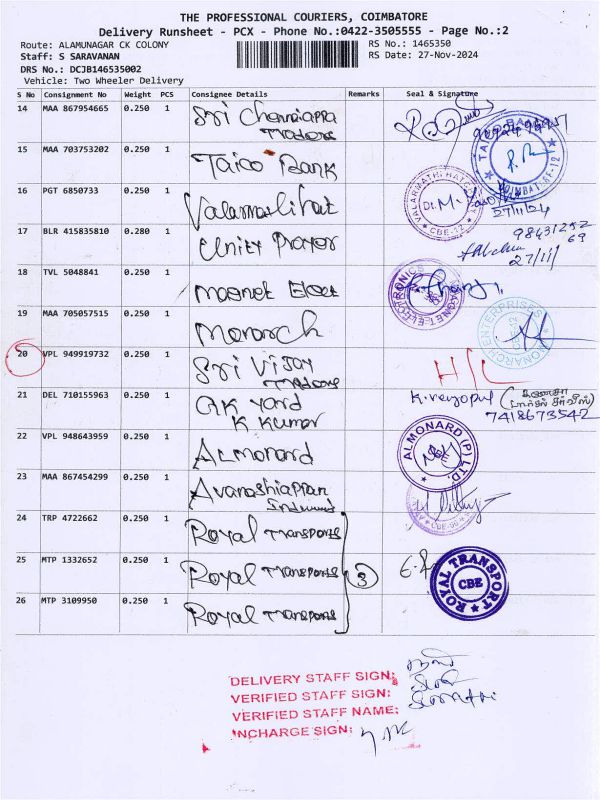 THE PROFESSIONAL COURIERS, COIMBATORE
Delivery Runsheet - PCX - Phone No.:0422-3505555 - Page No.:2
Route: ALAMUNAGAR CK COLONY
Staff: S SARAVANAN
DRS No.: DCJB146535002
Vehicle: Two Wheeler Delivery
RS No.: 1465350
RS Date: 27-Nov-2024
S No Consignment No Weight PCS Consignee Details Remarks Seal & Signature
14 MAA 867954665 0.250 1 Sri Chenniappa
Traders
15 MAA 703753202 0.250 1 Taico Bank
16 PGT 6850733 0.250 1 Valarmathi Hat
VALARMATHI HAT
CBE-12
27/11/24
17 BLR 415835810 0.280 1 Unity Prayer
98431252
69
27/11/
18 TVL 5048841 0.250 1 Magnet Elect
MAGNET ELECTRONICS
19 MAA 705057515 0.250 1 Monarch
MONARCH ENTERPRISES
20 VPL 949919732 0.250 1 Sri Vijay
Traders
H/L
21 DEL 710155963 0.250 1 AK Yard
K Kumar
7418673542
22 VPL 948643959 0.250 1 Almonard
ALMONARD (P) LTD.
23 MAA 867454299 0.250 1 Avanashiappan
24 TRP 4722662 0.250 1 Royal Transports
25 MTP 1332652 0.250 1 Royal Transports
3
ROYAL TRANSPORT
CBE
26 MTP 3109950 0.250 1 Royal Transports
DELIVERY STAFF SIGN:
VERIFIED STAFF SIGN:
VERIFIED STAFF NAME:
INCHARGE SIGN: